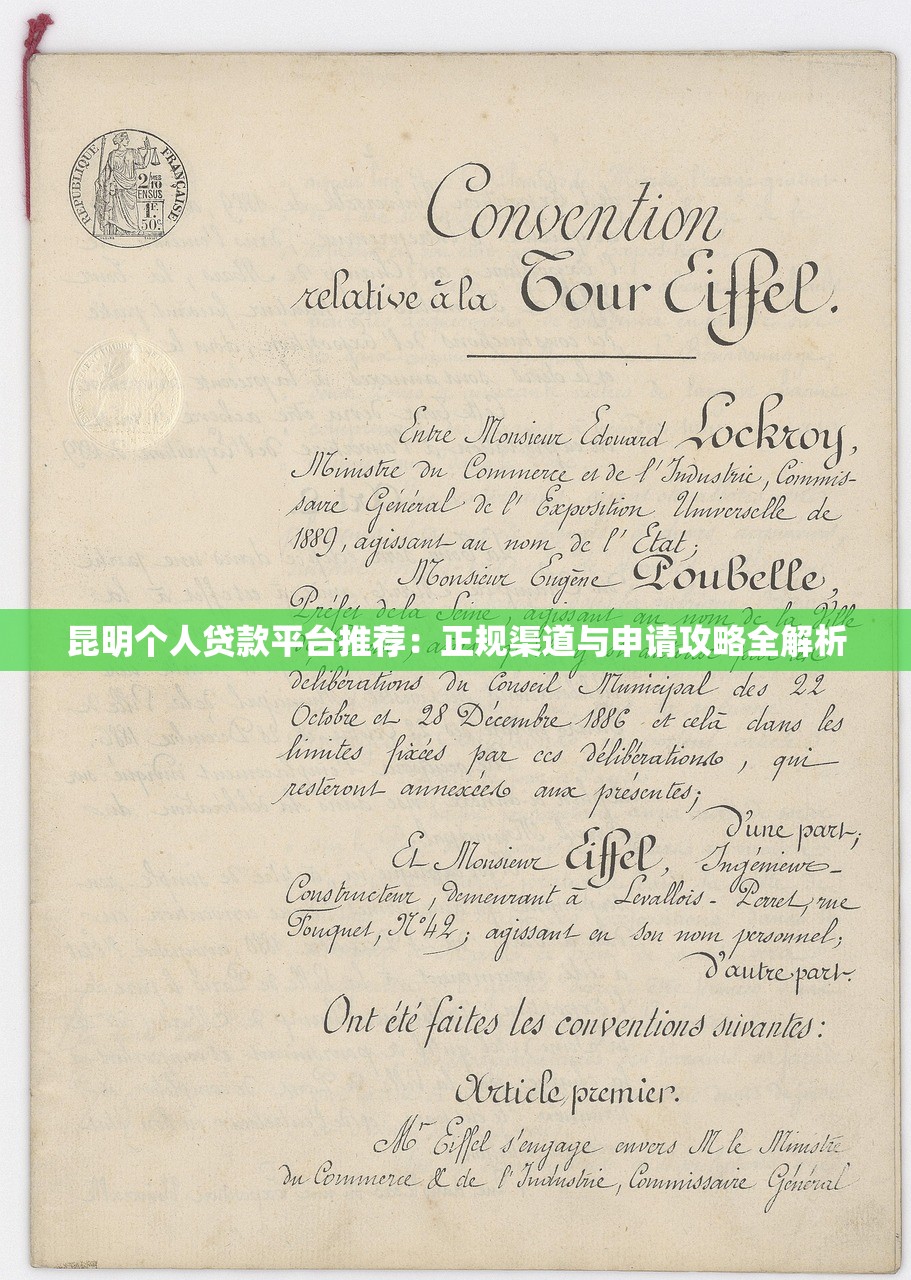 RÉPUBLIQUE FRANÇAISE
2/10
EN SUS
1F.
50c
Convention
relative à la Tour Eiffel.
Entre Monsieur Edouard Lockroy,
Ministre du Commerce et de l'Industrie, Commis-
saire Général de l'Exposition Universelle de
1889, agissant au nom de l'Etat;
Monsieur Eugène Poubelle,
Préfet de la Seine, agissant au nom de la Ville
昆明个人贷款平台推荐：正规渠道与申请攻略全解析
délibérations du Conseil Municipal des 22
Octobre et 28 Décembre 1886 et celà dans les
limites fixées par ces délibérations, qui
resteront annexées aux présentes;
d'une part;
Et Monsieur Eiffel, Ingénieur-
Constructeur, demeurant à Levallois-Perret, rue
Fouquet, N° 42; agissant en son nom personnel;
d'autre part.
Ont été faites les conventions suivantes:
Article premier.
Mr Eiffel s'engage envers M le Ministre
du Commerce & de l'Industrie, Commissaire Général